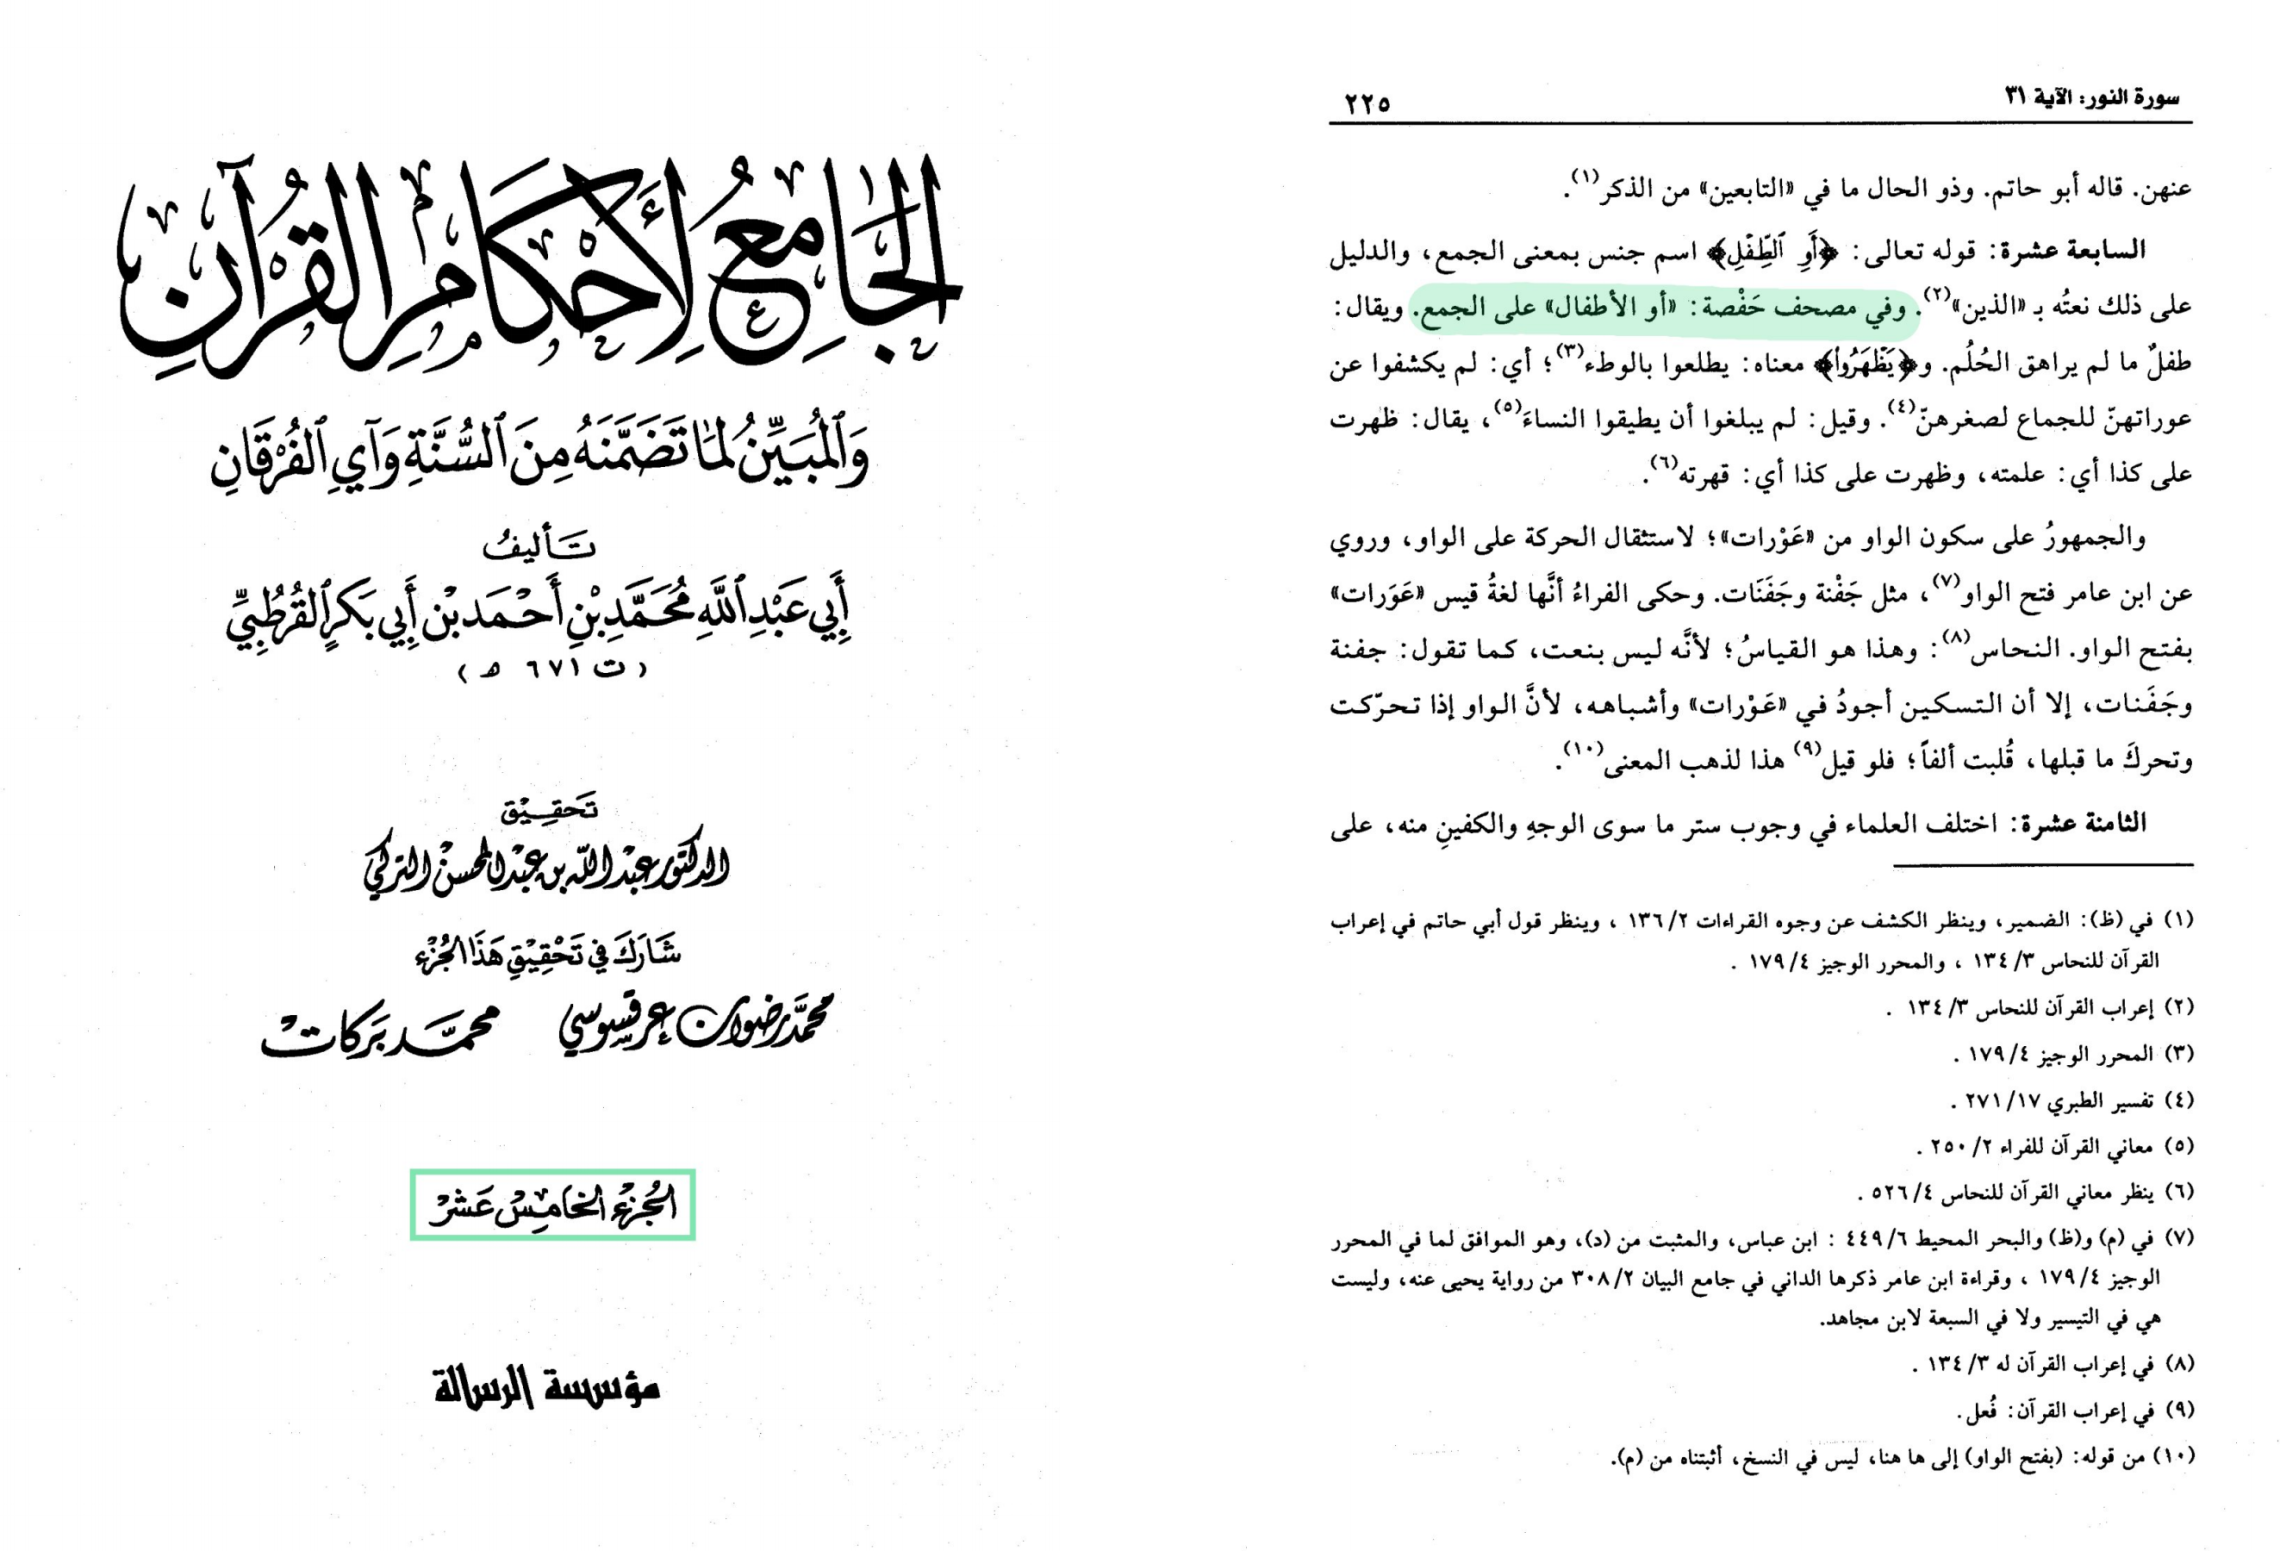 الجَامِعُ لِأَحْكَامِ القُرْآنِ
وَالْمُبَيِّنُ لِمَا تَضَمَّنَهُ مِنَ السُّنَّةِ وَآيِ الفُرْقَانِ
تَأليفُ
أَبِي عَبْدِ اللَّهِ مُحَمَّدِ بْنِ أَحْمَدَ بْنِ أَبِي بَكْرٍ القُرْطُبِيِّ
(ت ٦٧١ هـ)
تَحقِيْق
الدكتور عبْد اللّه بن عبْد المحسنْ التركي
شَارَكَ فِي تَحْقِيْقِ هَذَا الجُزْء
محمَّد رضوان عرقسوسي محمَّد بَركات
الجُزءُ الخَامِسْ عَشَرْ
مؤسسة الرسالة
سورة النور: الآية ٣١
٢٢٥
عنهن. قاله أبو حاتم. وذو الحال ما في «التابعين» من الذكر(١).
السابعة عشرة: قوله تعالى: ﴿أَوِ ٱلطِّفْلِ﴾ اسم جنس بمعنى الجمع، والدليل
على ذلك نعتُه بـ «الذين»(٢). وفي مصحف حَفْصة: «أو الأطفال» على الجمع. ويقال:
طفلٌ ما لم يراهق الحُلُم. و﴿يَظْهَرُوا۟﴾ معناه: يطلعوا بالوطء(٣)؛ أي: لم يكشفوا عن
عوراتهنّ للجماع لصغرهنّ(٤). وقيل: لم يبلغوا أن يطيقوا النساءَ(٥)، يقال: ظهرت
على كذا أي: علمته، وظهرت على كذا أي: قهرته(٦).
والجمهورُ على سكون الواو من «عَوْرات»؛ لاستثقال الحركة على الواو، وروي
عن ابن عامر فتح الواو(٧)، مثل جَفْنة وجَفَنَات. وحكى الفراءُ أنَّها لغةُ قيس «عَوَرات»
بفتح الواو. النحاس(٨): وهذا هو القياسُ؛ لأنَّه ليس بنعت، كما تقول: جفنة
وجَفَنات، إلا أن التسكين أجودُ في «عَوْرات» وأشباهه، لأنَّ الواو إذا تحرّكت
وتحركَ ما قبلها، قُلبت ألفاً؛ فلو قيل(٩) هذا لذهب المعنى(١٠).
الثامنة عشرة: اختلف العلماء في وجوب ستر ما سوى الوجهِ والكفينِ منه، على
(١) في (ظ): الضمير، وينظر الكشف عن وجوه القراءات ١٣٦/٢ ، وينظر قول أبي حاتم في إعراب
القرآن للنحاس ١٣٤/٣ ، والمحرر الوجيز ١٧٩/٤ .
(٢) إعراب القرآن للنحاس ١٣٤/٣ .
(٣) المحرر الوجيز ١٧٩/٤ .
(٤) تفسير الطبري ٢٧١/١٧ .
(٥) معاني القرآن للفراء ٢٥٠/٢ .
(٦) ينظر معاني القرآن للنحاس ٥٢٦/٤ .
(٧) في (م) و(ظ) والبحر المحيط ٤٤٩/٦ : ابن عباس، والمثبت من (د)، وهو الموافق لما في المحرر
الوجيز ١٧٩/٤ ، وقراءة ابن عامر ذكرها الداني في جامع البيان ٣٠٨/٢ من رواية يحيى عنه، وليست
هي في التيسير ولا في السبعة لابن مجاهد.
(٨) في إعراب القرآن له ١٣٤/٣ .
(٩) في إعراب القرآن: فُعل.
(١٠) من قوله: (بفتح الواو) إلى ها هنا، ليس في النسخ، أثبتناه من (م).